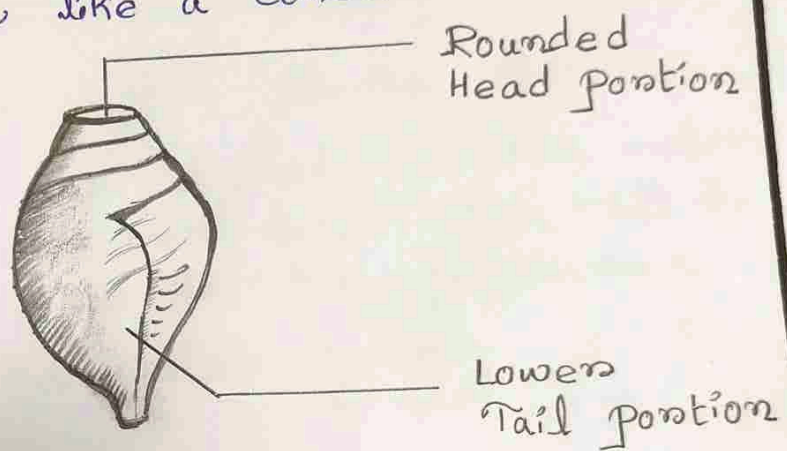 like a
Rounded
Head portion
Lower
Tail portion